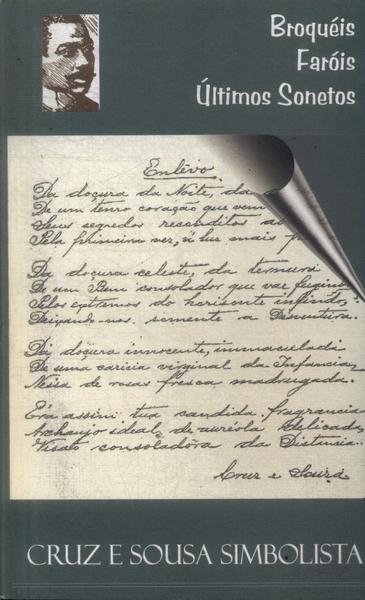 Broquéis
Faróis
Últimos Sonetos
Enlêvo
Da doçura da Noite, da
De um tenro coração que vem
Seus segredos recônditos
Pela primeira vez, á luz mais
Da doçura celeste, da ternura
De um Bem consolador que vae fugindo
Pelos extremos do horizonte infindo,
Deixando-nos somente a Desventura.
Da doçura innocente, immaculada
De uma caricia virginal da Infancia,
Nessa de rosas fresca madrugada.
Era assim tua candida fragrancia
Archanjo ideal de auréola delicada,
Visão consoladôra da Distancia..
Cruz e Souza
CRUZ E SOUSA SIMBOLISTA